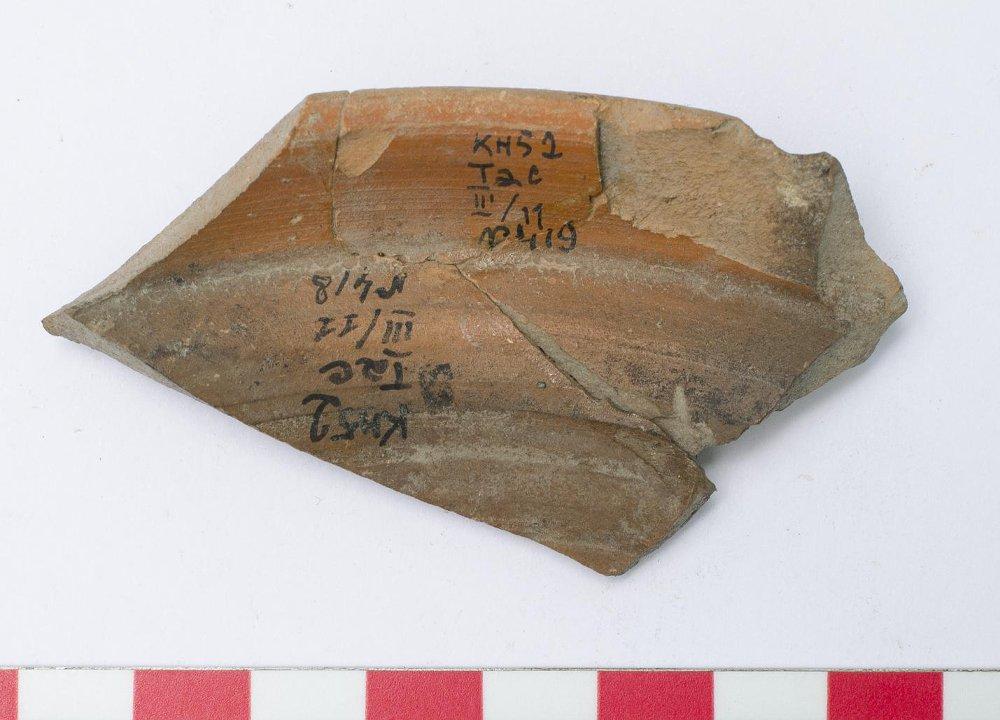 KH52
T2C
III/11
N419
KH52
T2C
III/II
N418